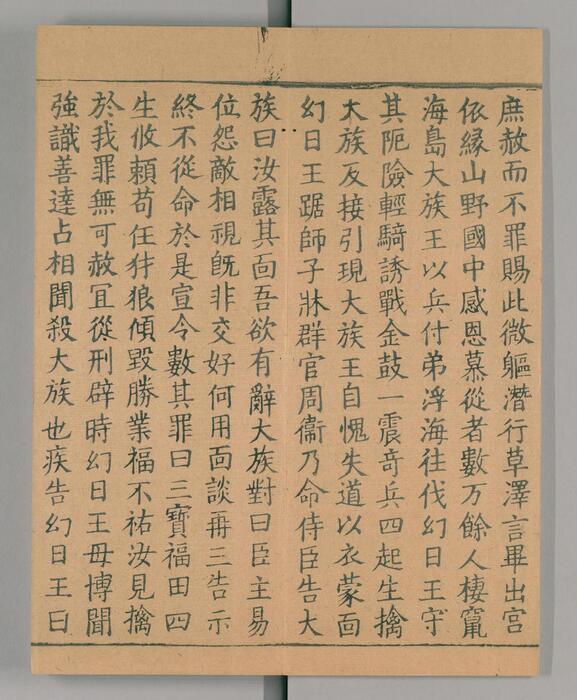 庶赦而不罪賜此微軀潛行草澤言畢出宮
依緣山野國中感恩慕從者數万餘人棲竄
海島大族王以兵付弟浮海往伐幻日王守
其阨險輕騎誘戰金鼓一震奇兵四起生擒
大族反接引現大族王自愧失道以衣蒙面
幻日王踞師子牀群官周衞乃命侍臣告大
族曰汝露其面吾欲有辭大族對曰臣主易
位怨敵相視旣非交好何用面談再三告示
終不從命於是宣令數其罪曰三寶福田四
生攸賴苟任犲狼傾毀勝業福不祐汝見擒
於我罪無可赦宜從刑辟時幻日王母博聞
強識善達占相聞殺大族也疾告幻日王曰